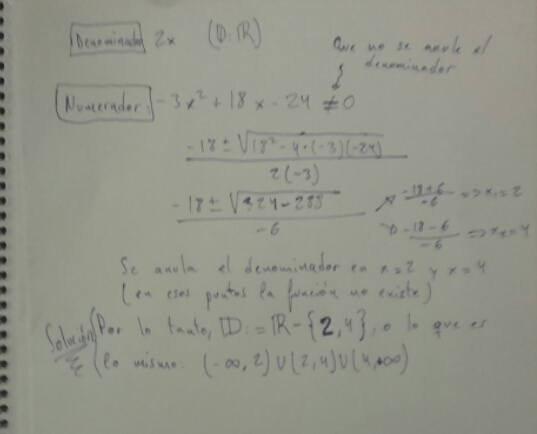 Denominador 2x (D:ℝ)
Que no se anule el
denominador
Numerador: -3x² + 18x - 24 ≠ 0
-18 ± √(18² - 4·(-3)(-24))
2(-3)
-18 ± √(324 - 288) / -6
-18+6 / -6 => x₁ = 2
-18-6 / -6 => x₂ = 4
Se anula el denominador en x=2 y x=4
(en esos puntos la función no existe)
Solución
Por lo tanto, D := ℝ - {2,4}, o lo que es
lo mismo: (-∞, 2) ∪ (2, 4) ∪ (4, +∞)